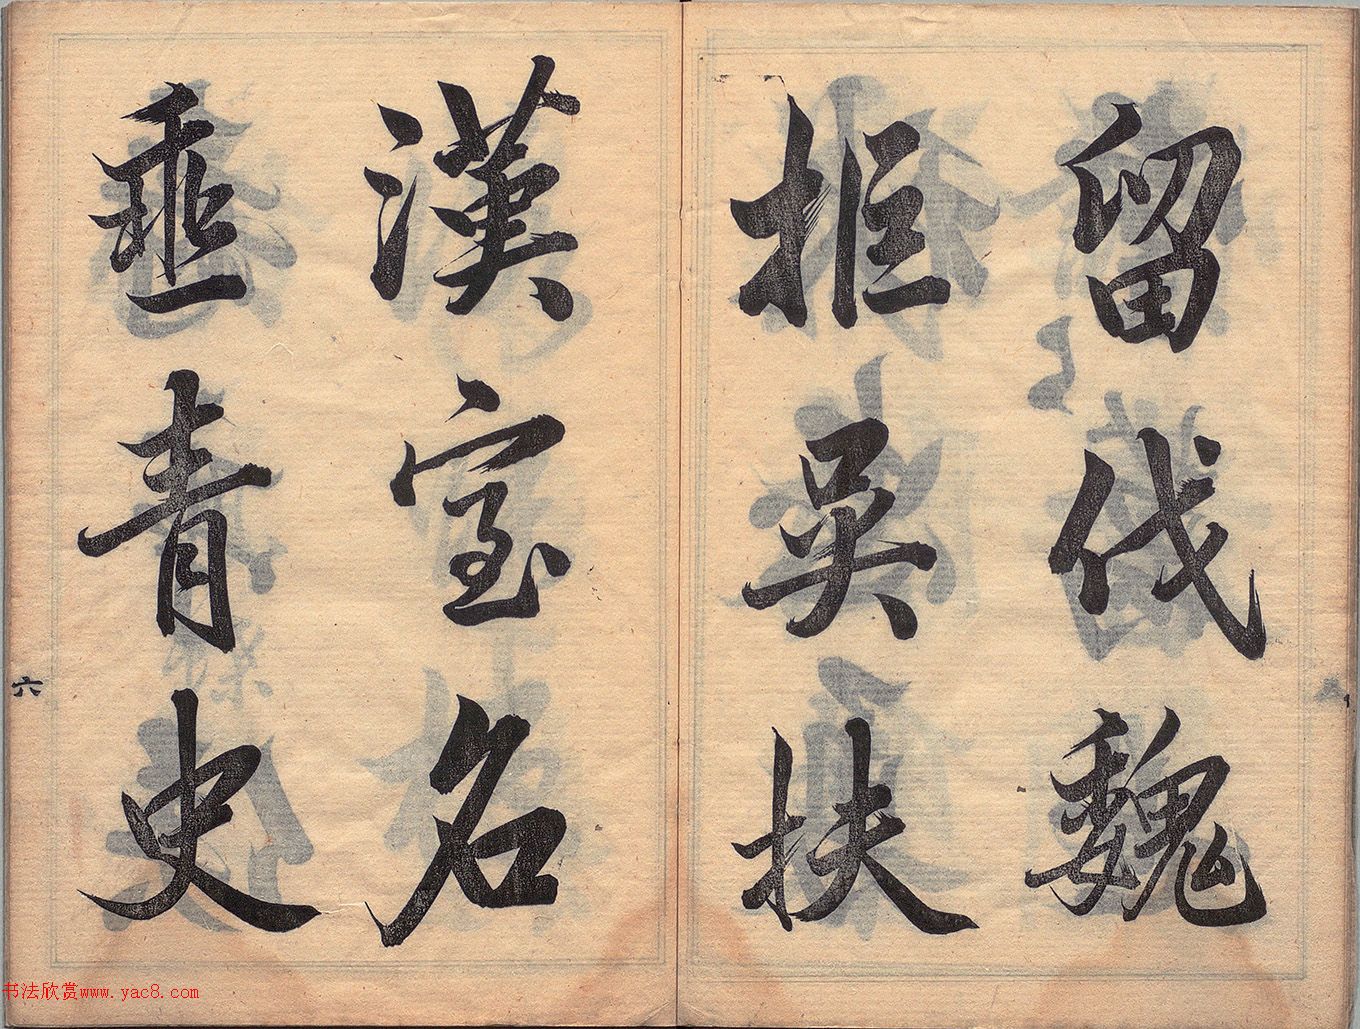 留伐魏
拒吳扶
漢室名
垂青史
六
书法欣赏www.yac8.com